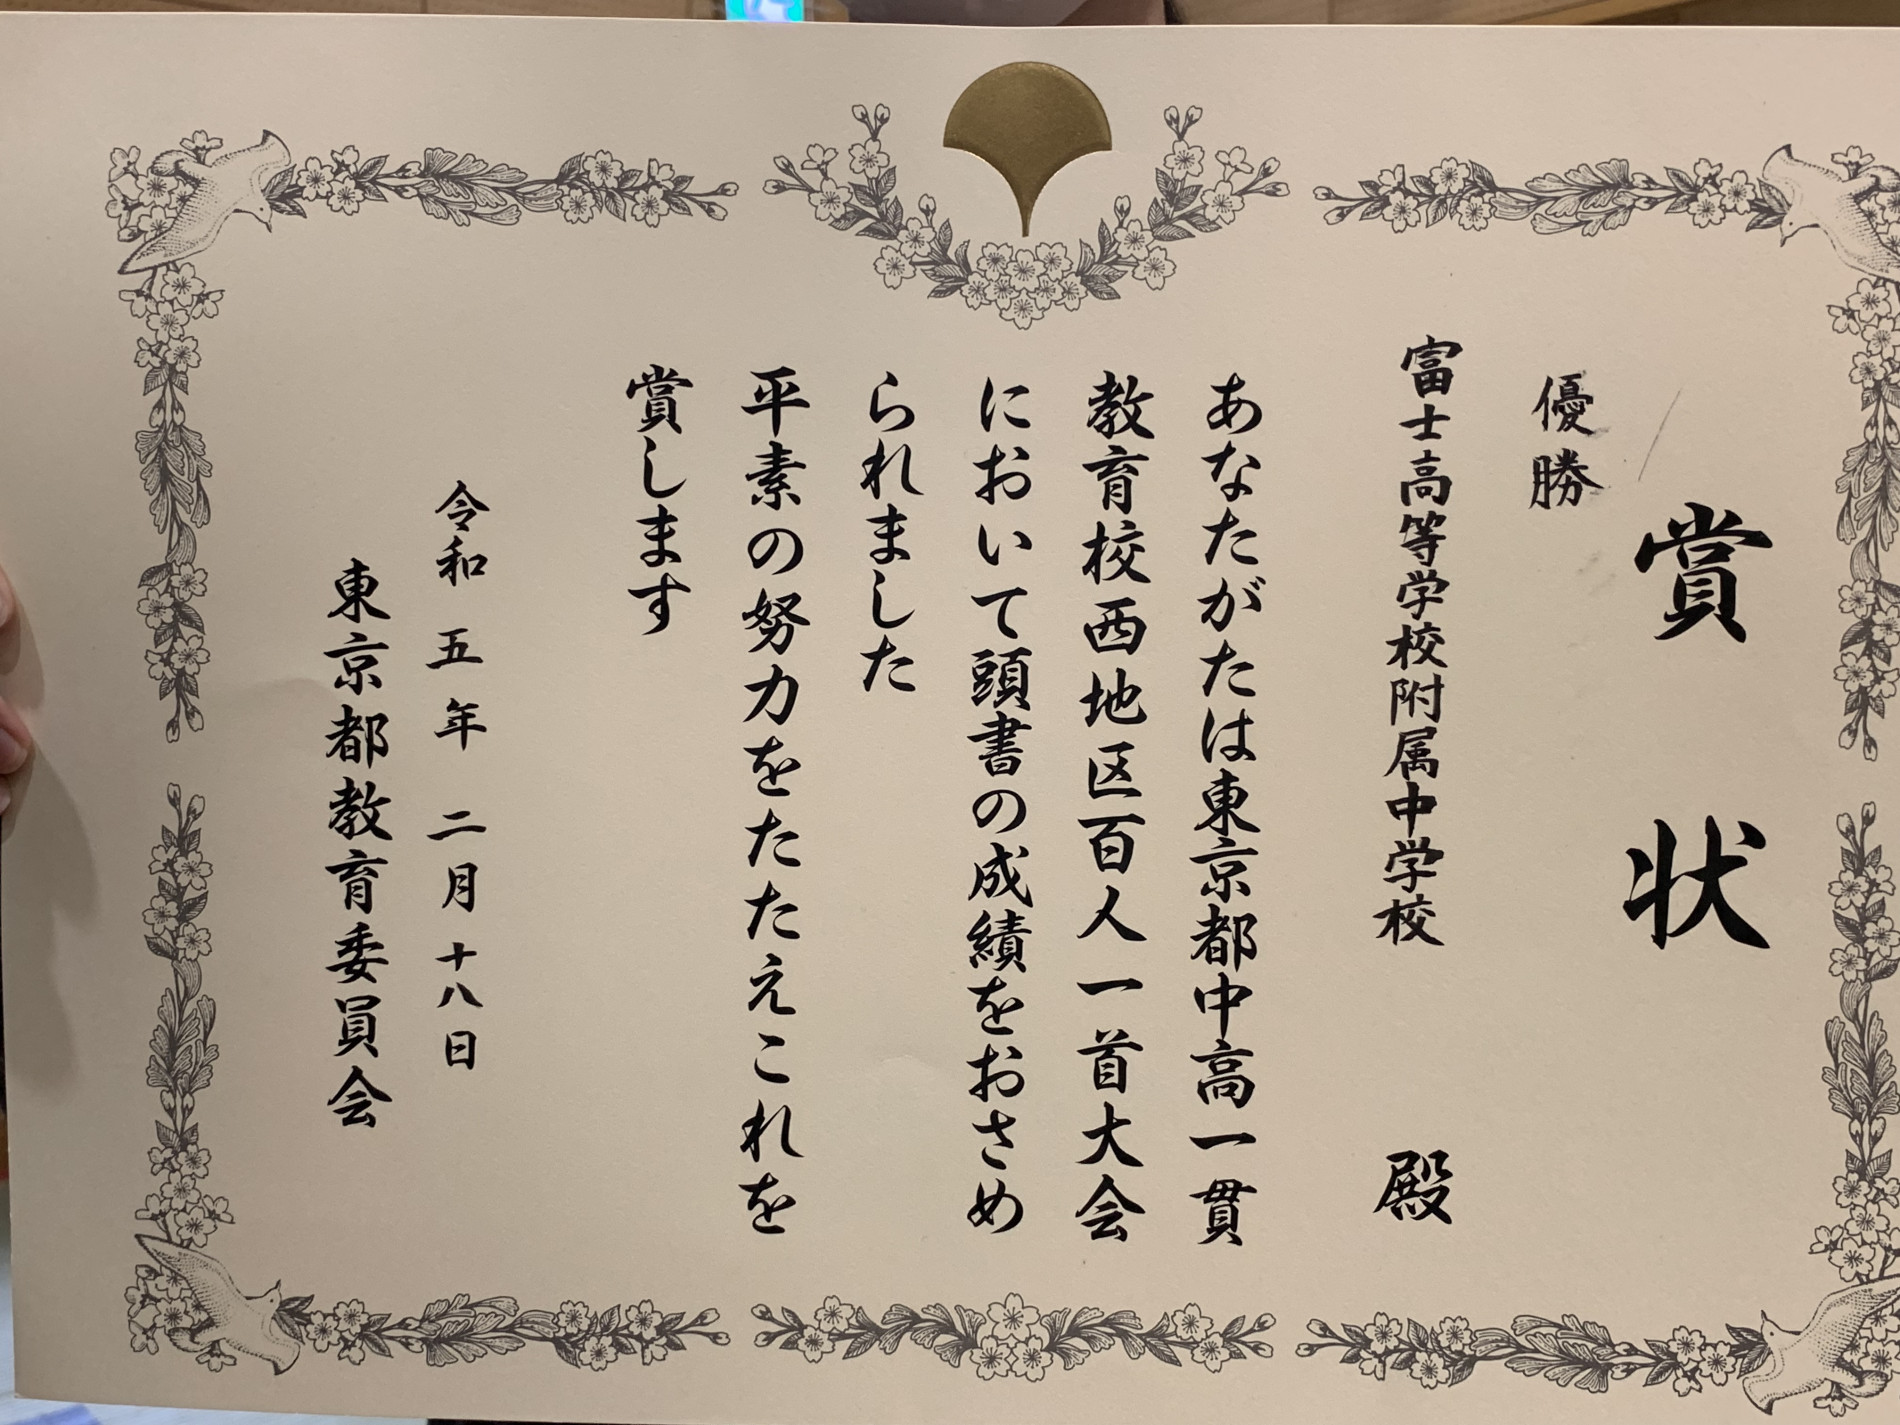 賞状
優勝
富士高等学校附属中学校 殿
あなたがたは東京都中高一貫
教育校西地区百人一首大会
において頭書の成績をおさめ
られました
平素の努力をたたえこれを
賞します
令和五年二月十八日
東京都教育委員会